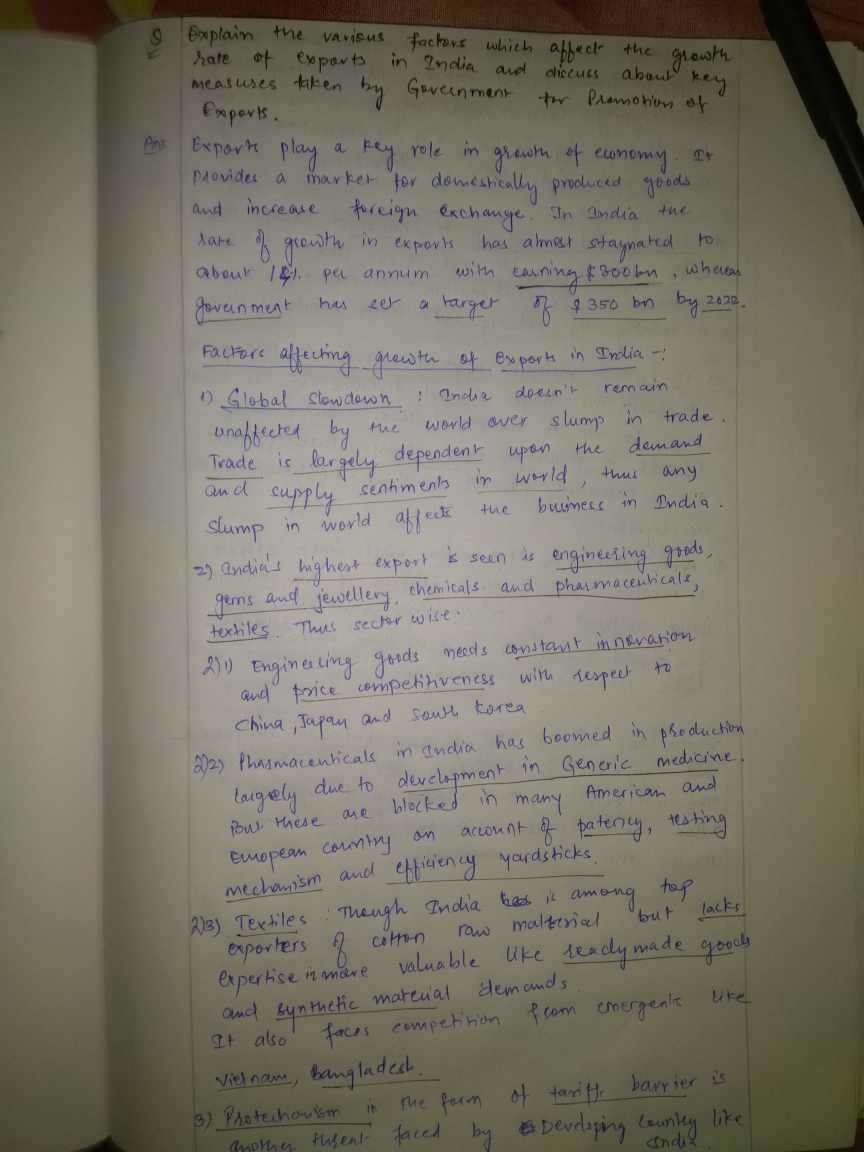 Q Explain the various factors which affect the growth
rate of exports in India and discuss about key
measures taken by Government for Promotion of
Exports.
Ans Exports play a key role in growth of economy. It
provides a market for domestically produced goods
and increase foreign exchange. In India the
rate of growth in exports has almost stagnated to
about per annum with earning $300bn, whereas
government has set a target of $350 bn by 2022.
Factors affecting growth of Exports in India -:
1) Global Slowdown : India doesn't remain
unaffected by the world over slump in trade.
Trade is largely dependent upon the demand
and supply sentiments in world, thus any
slump in world affects the business in India.
2) India's highest export is seen is engineering goods,
gems and jewellery, chemicals and pharmaceuticals,
textiles. Thus sector wise.
2)1) Engineering goods needs constant innovation
and price competitiveness with respect to
China, Japan and South Korea
2)2) Pharmaceuticals in India has boomed in production
largely due to development in Generic medicine.
But these are blocked in many American and
European country on account of patency, testing
mechanism and efficiency yardsticks.
2)3) Textiles : Though India is among top
exporters of cotton raw material but lacks
expertise in more valuable like readymade goods
and synthetic material demands.
It also faces competition from emergents like
Vietnam, Bangladesh.
3) Protechonism in the form of tariff barrier is
another threat faced by Developing Country like
India.